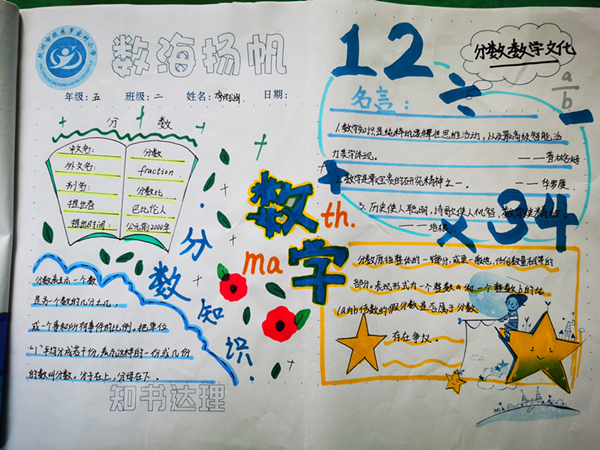 数海扬帆
年级：五 班级：二 姓名： 日期：
分数
中文名： 分数
外文名： fraction
别名： 分数比
提出者 巴比伦人
提出时间： 公元前2000年
分数知识
分数表示一个数
是另一个数的几分之几
或一个事和所有事件的比例。把单位
"1"平均分成若干份，表示这样的一份或几份
的数叫分数，分子在上，分母在下。
知书达理
数字
th.
ma
12
÷
分数数学文化
a/b
名言：
1.数学知识是纯粹的
力
2.数学是
——华罗庚
3.历史使人聪明，诗歌使人机智，
——培根
+
×
34
分数原指整体的一部分，或更一般地，任何数量相等的
部分。表现形式为一个整数a和一个整数b的比
(a为b倍数的假分数是否属于分数
存在争议。